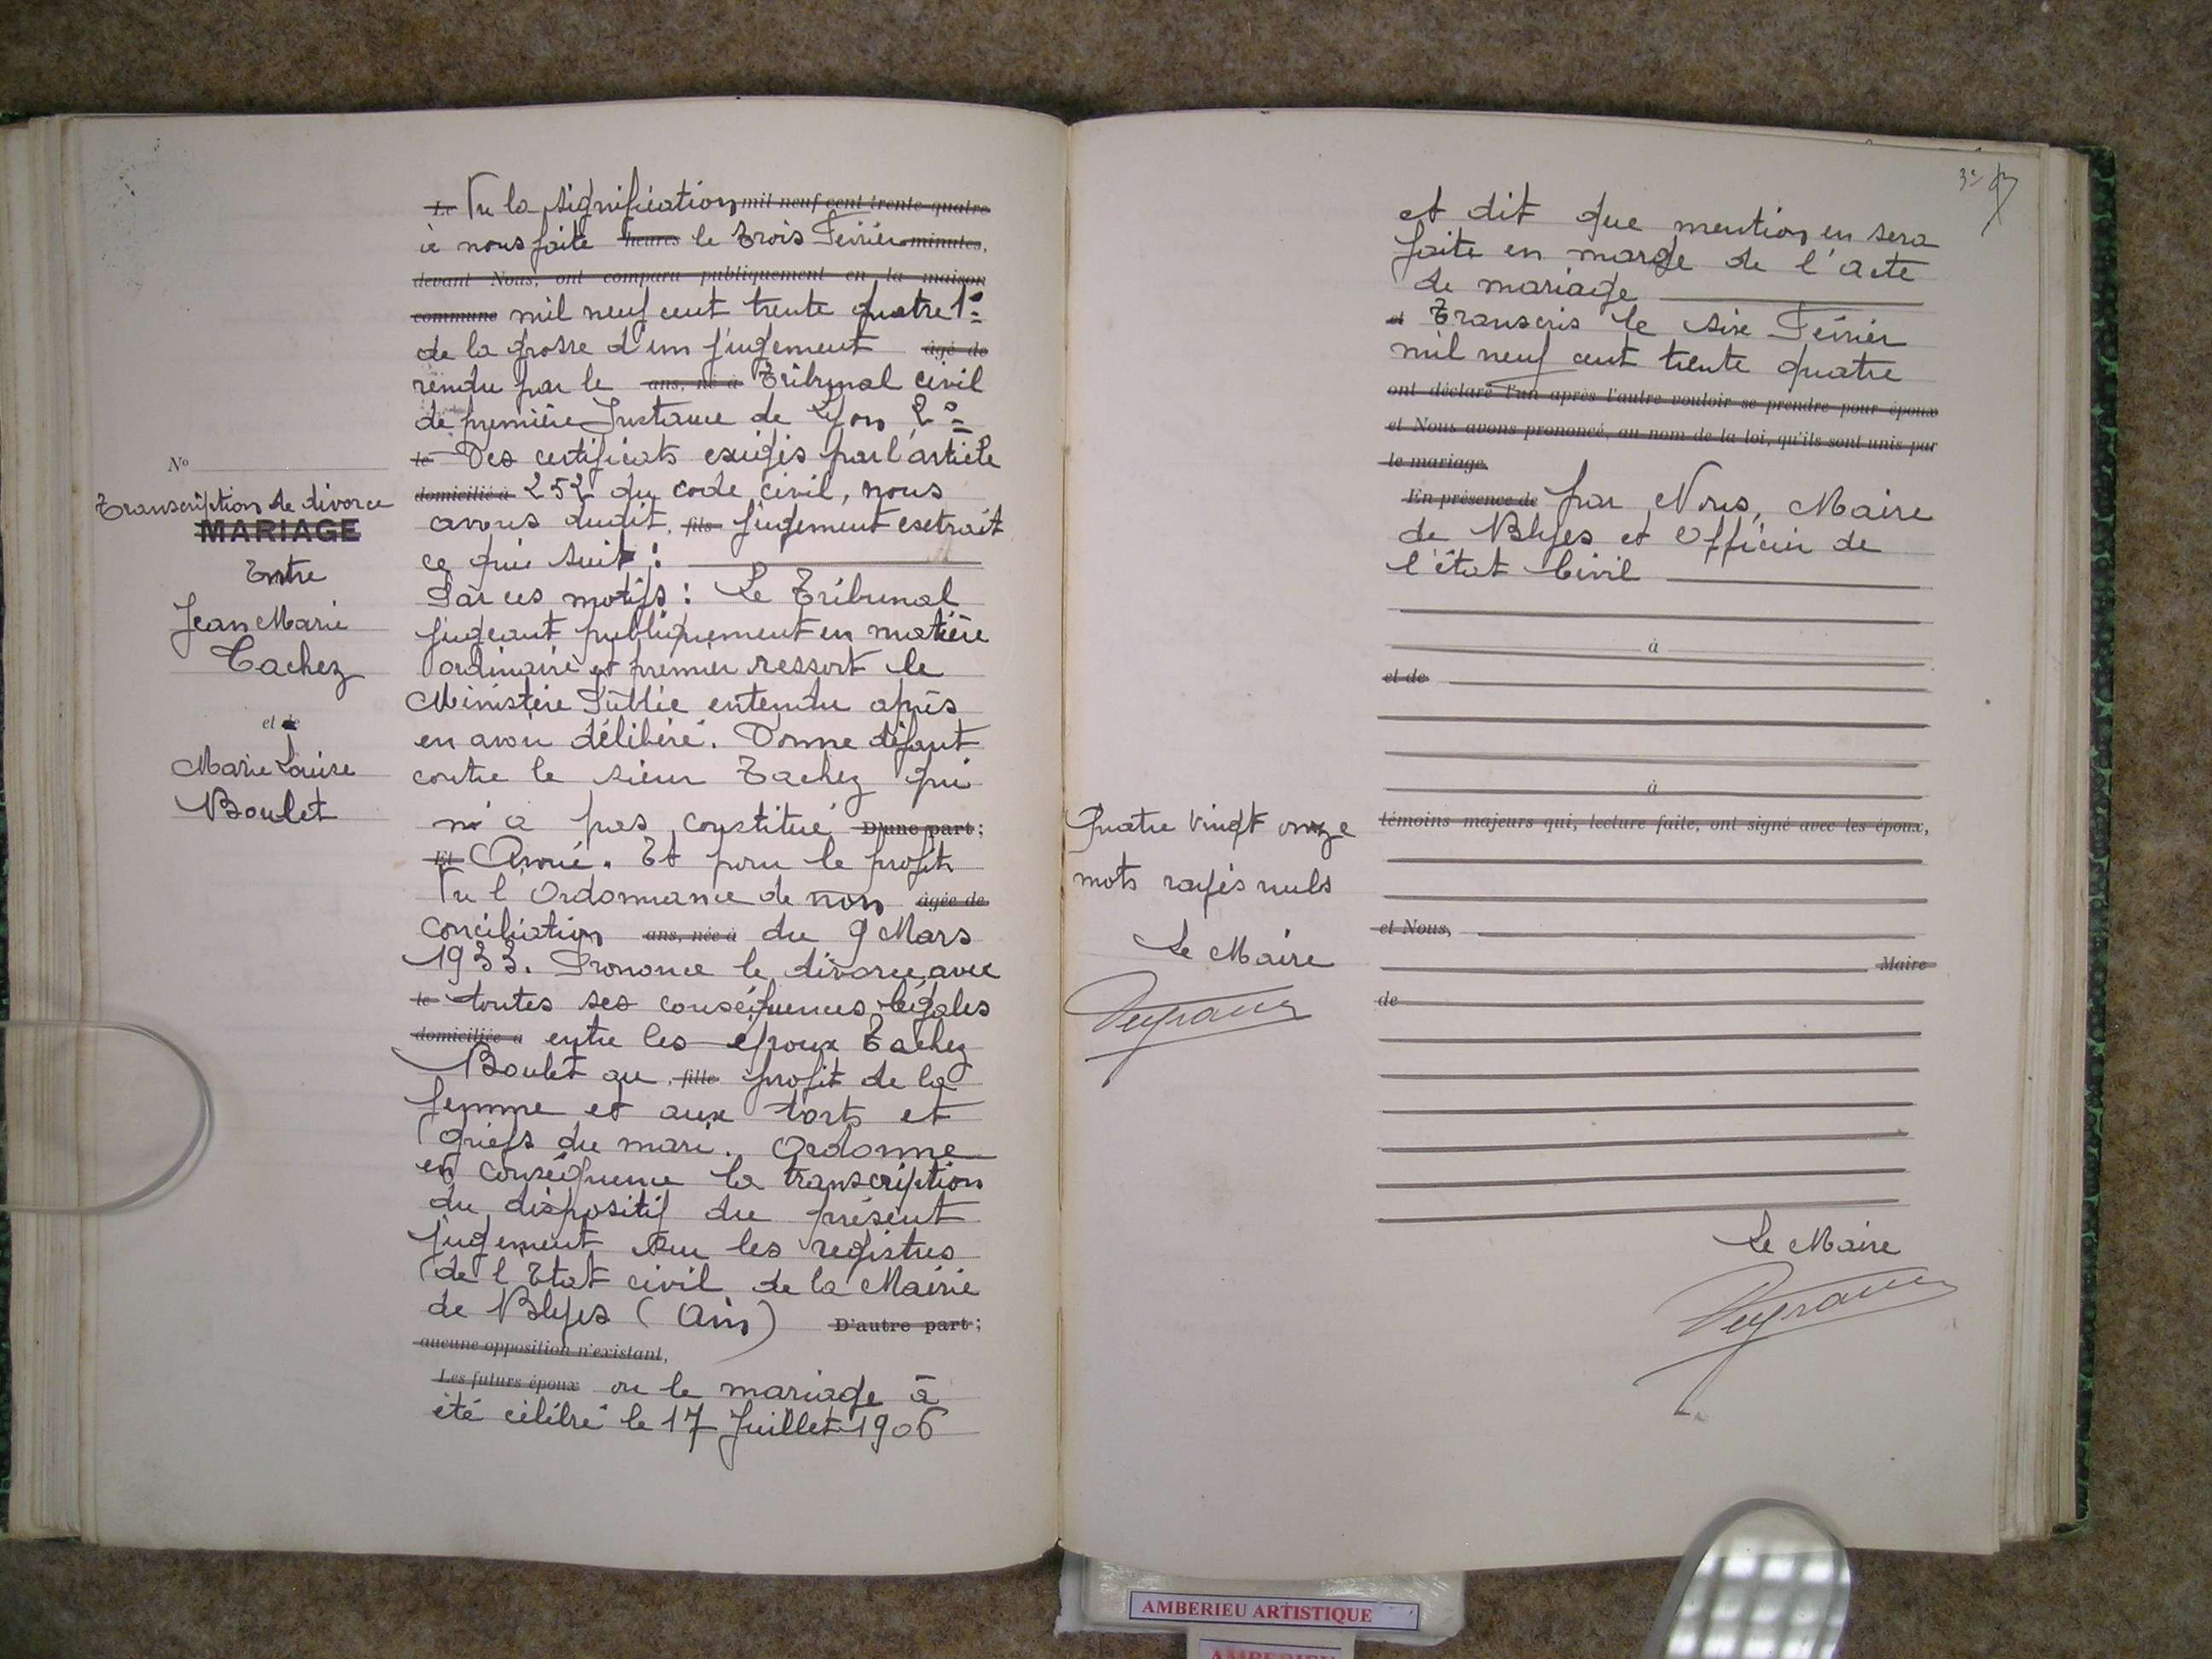 Nº
Transcription de divorce
MARIAGE
Entre
Jean Marie
Tachez
et de
Marie Louise
Boulet
Le Vu la signification mil neuf cent trente-quatre
à nous faite heures le trois Février minutes,
devant Nous, ont comparu publiquement en la maison
commune mil neuf cent trente quatre 1º
de la grosse d'un jugement âgé de
rendu par le ans, né à Tribunal civil
de première Instance de Lyon 2º
le Des certificats exigés par l'article
domicilié à 252 du code civil, nous
avons dudit fils jugement extrait
ce qui suit :
Par ces motifs : Le Tribunal
jugeant publiquement en matière
ordinaire et premier ressort le
Ministère Public entendu après
en avoir délibéré. Donne défaut
contre le sieur Tachez qui
n'a pas constitué D'une part ;
Et Avoué. Et pour le profit
Vu l Ordonnance de non âgée de
conciliation ans, née à du 9 Mars
1933. Prononce le divorce avec
le toutes ses conséquences légales
domiciliée à entre les époux Tachez
Boulet au fille profit de la
femme et aux torts et
griefs du mari. Ordonne
en conséquence la transcription
du dispositif du présent
jugement sur les registres
de l Etat civil de la Mairie
de Blyes (Ain) D'autre part ;
aucune opposition n'existant,
Les futurs époux ou le mariage à
été célébré le 17 Juillet 1906
et dit que mention en sera
faite en marge de l'acte
de mariage
et Transcris le six Février
mil neuf cent trente quatre
ont déclaré l'un après l'autre vouloir se prendre pour époux
et Nous avons prononcé, au nom de la loi, qu'ils sont unis par
le mariage.
En présence de par Nous, Maire
de Blyes et Officier de
l'état Civil
à
et de
à
Quatre vingt onze
mots rayés nuls
Le Maire
témoins majeurs qui, lecture faite, ont signé avec les époux,
et Nous,
Maire
de
Le Maire
AMBERIEU ARTISTIQUE
AMBERIEU